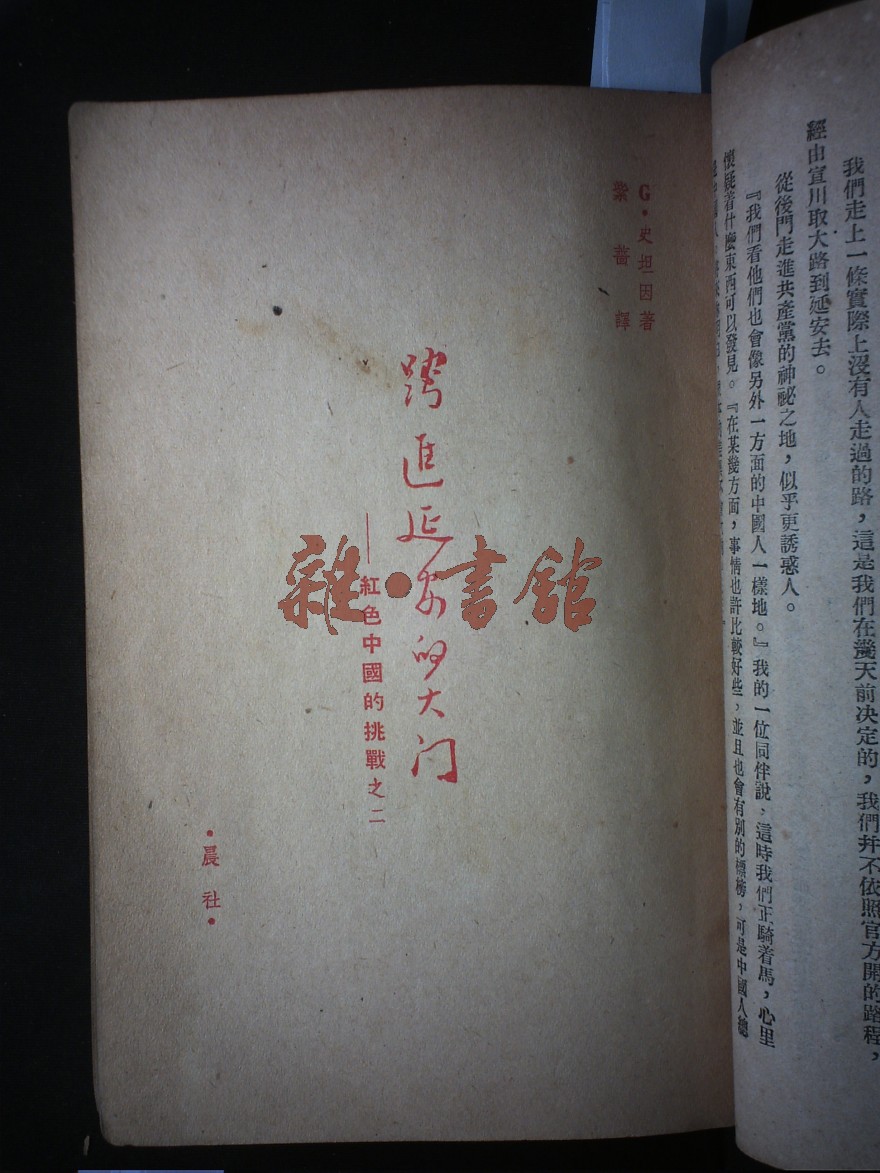 G·史坦因著
紫薔譯
跨進延安的大门
——紅色中國的挑戰之二
·晨社·
雜·書館
我們走上一條實際上沒有人走過的路，這是我們在幾天前決定的，我們并不依照官方開的路程，
經由宜川取大路到延安去。
從後門走進共產黨的神祕之地，似乎更誘惑人。
『我們看他們也會像另外一方面的中國人一樣地。』我的一位同伴說，這時我們正騎着馬，心里
懷疑着什麼東西可以發見。『在某幾方面，事情也許比較好些，並且也會有別的標榜，可是中國人總